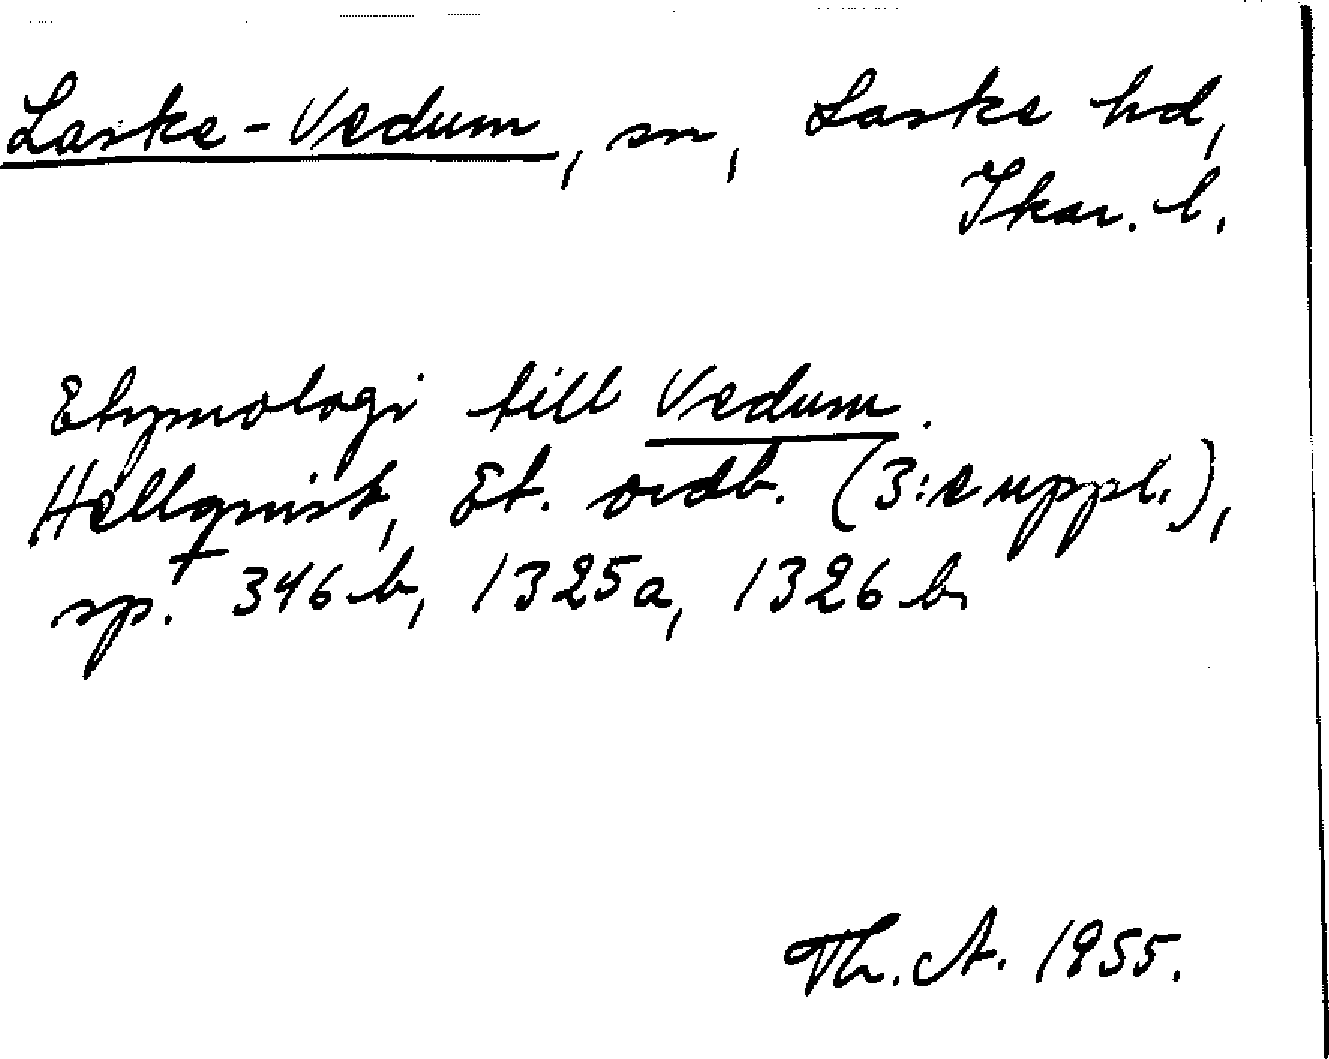 Laske-Vedum, sn, Laske hd,
Skar. l.
Etymologi till Vedum.
Hellquist, Et. ordb. (3:e uppl.),
sp. 346 b, 1325 a, 1326 b.
Th. A. 1955.